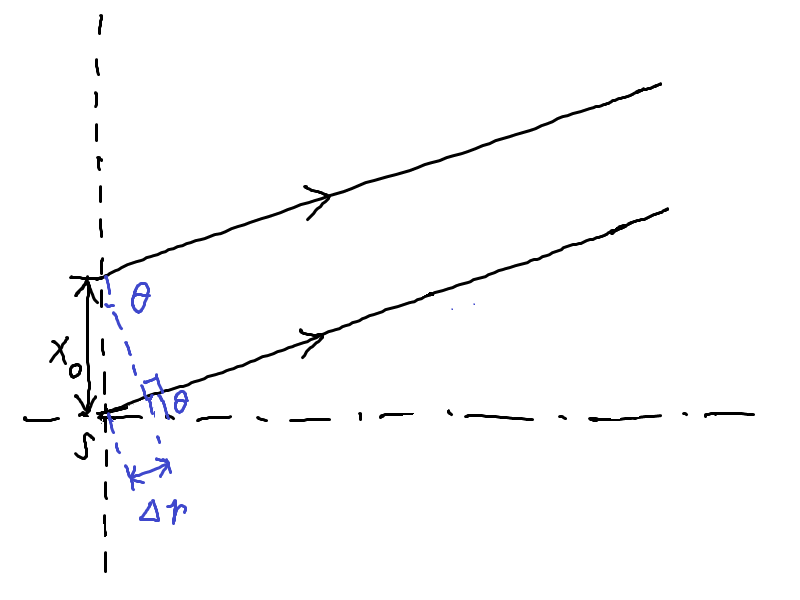 θ
X₀
θ
S
Δr